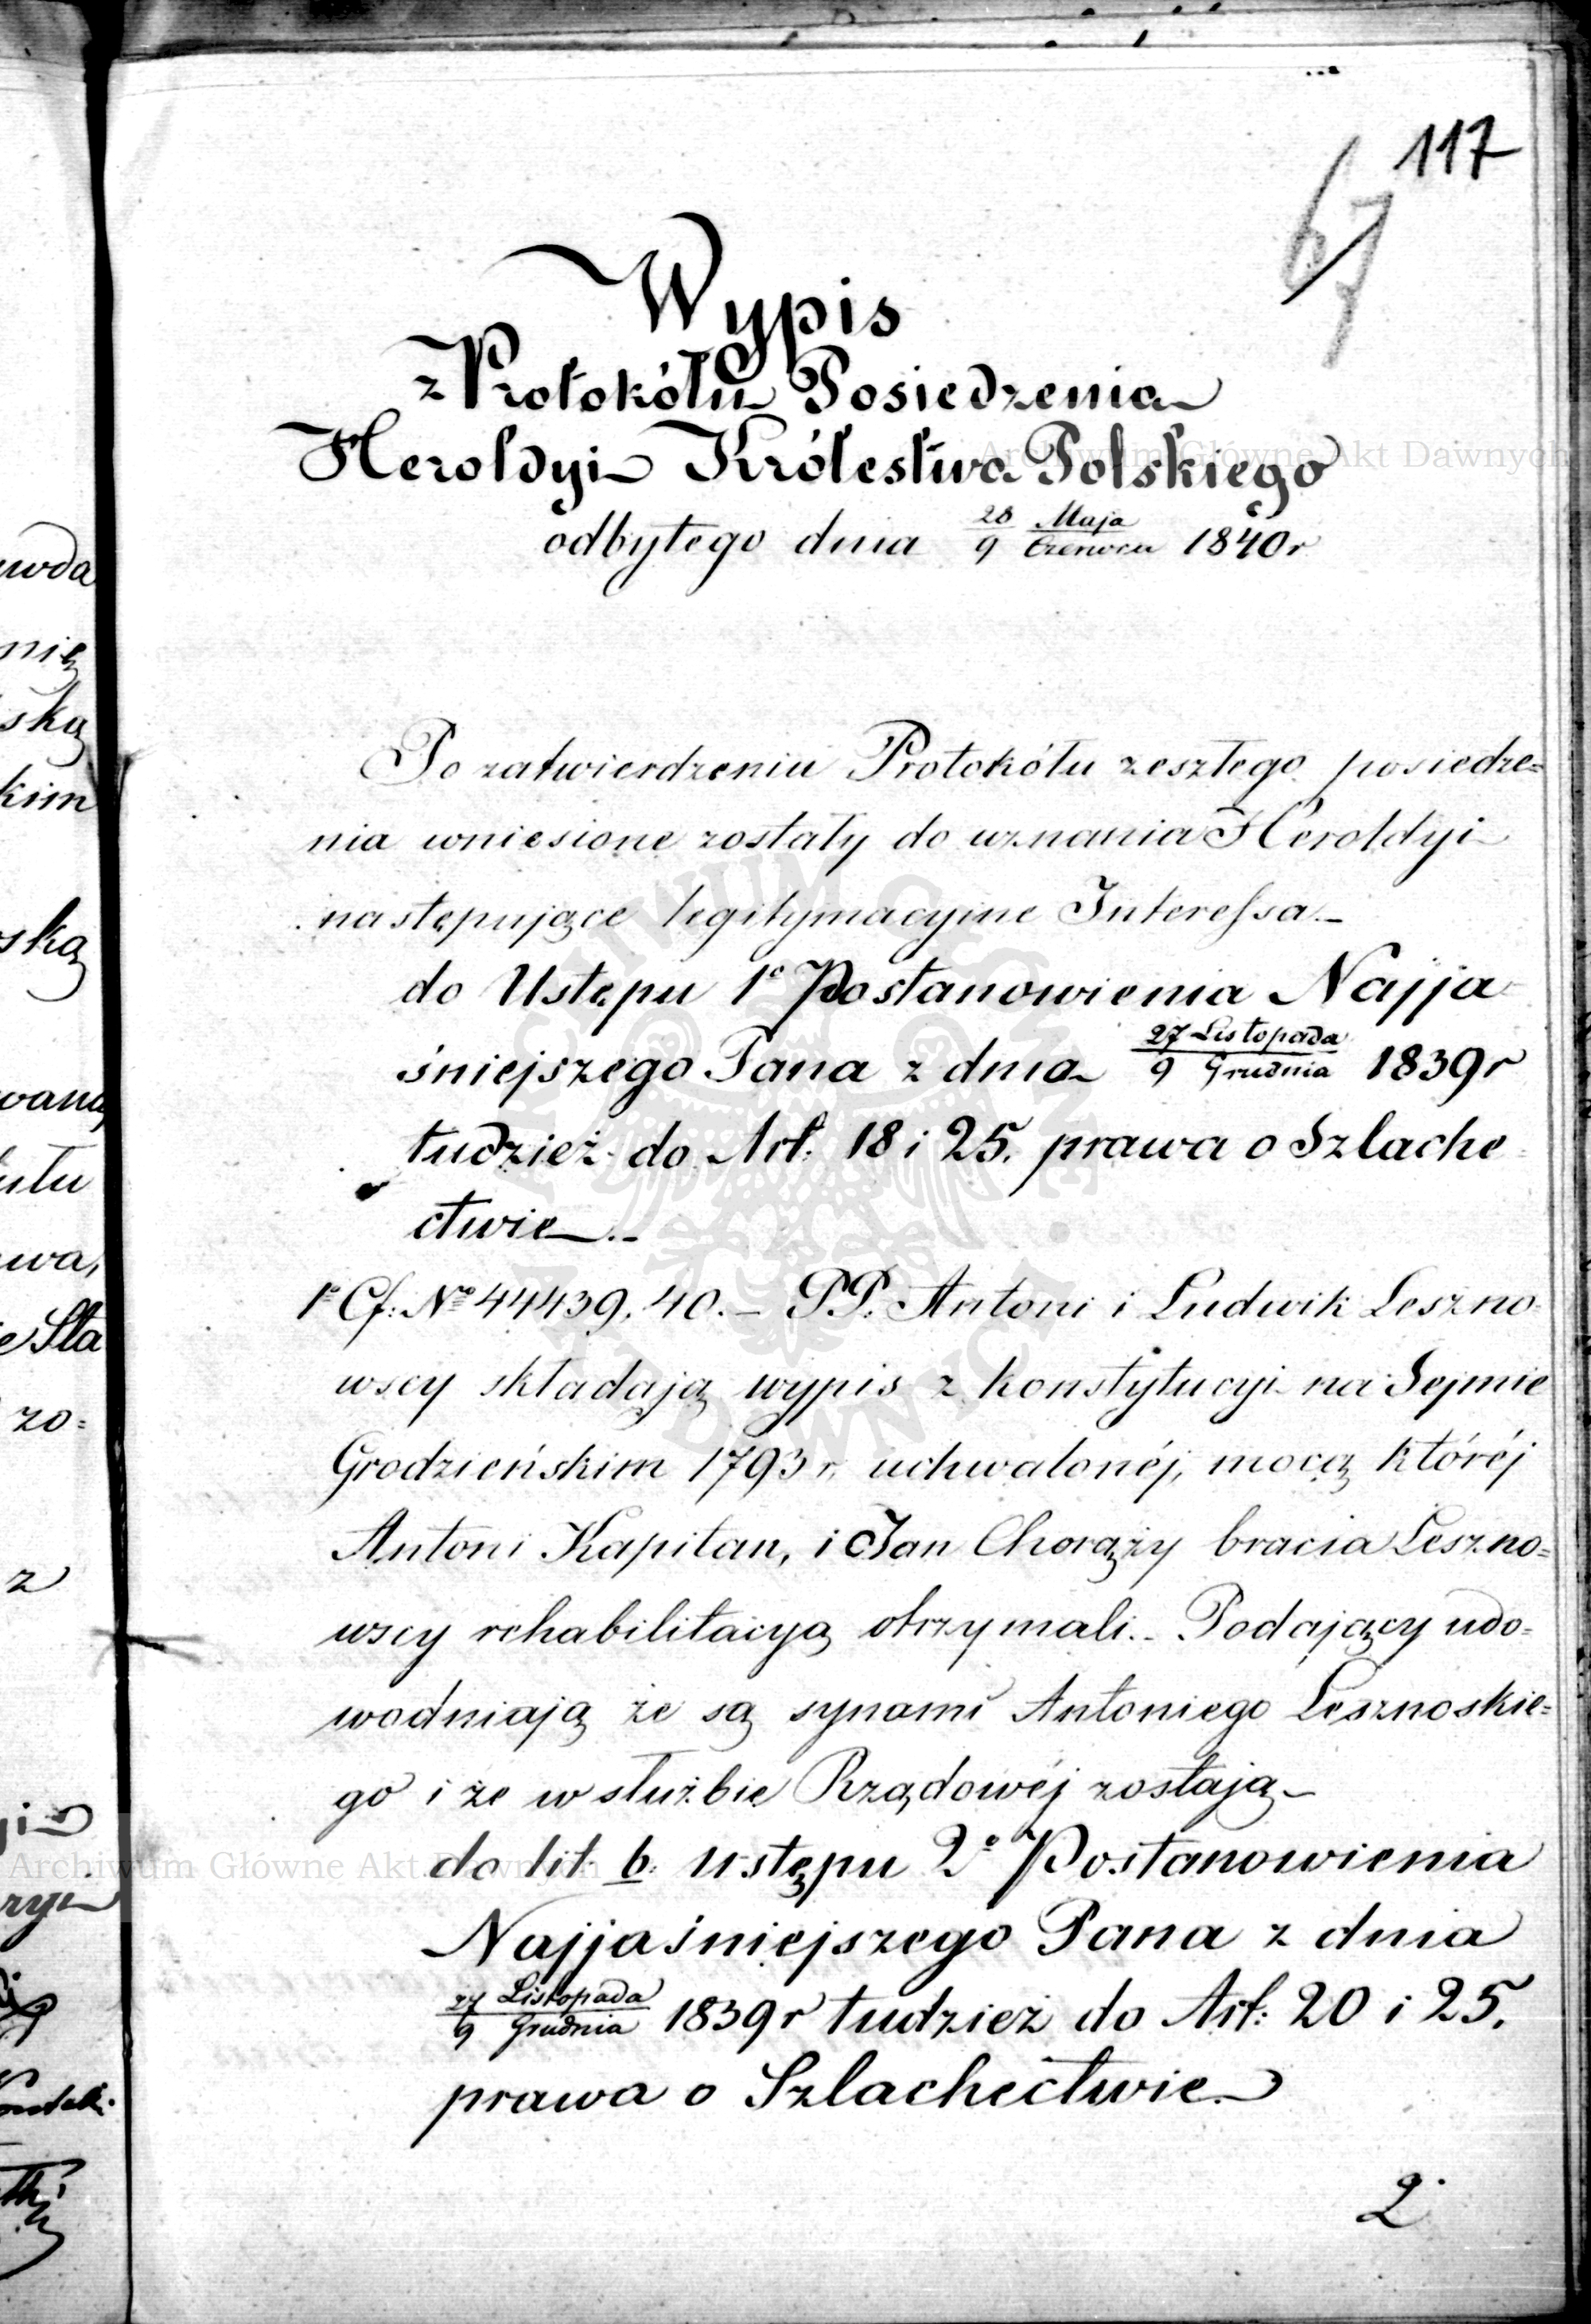 117
67
Wypis
z Protokółu Posiedzenia
Heroldyi Królestwa Polskiego
odbytego dnia 28 Maja / 9 Czerwca 1840 r
Po zatwierdzeniu Protokółu zeszłego posiedze=
nia wniesione zostały do uznania Heroldyi
następujące legitymacyjne Interessa.–
do Ustępu 1º Postanowienia Najja
śniejszego Pana z dnia 27 Listopada / 9 Grudnia 1839 r
tudzież do Art: 18 i 25. prawa o Szlache=
ctwie.–
1º Cf: Nº 44439. 40.– PP. Antoni i Ludwik Leszno=
wscy składają wypis z konstytucyi na Sejmie
Grodzieńskim 1793 r. uchwalonéj, mocą któréj
Antoni Kapitan, i Jan Chorąży bracia Leszno=
wscy rehabilitacyą otrzymali.– Podający udo=
wodniają że są synami Antoniego Lesznoskie=
go i że w służbie Rządowéj zostają–
do lit b. ustępu 2º Postanowienia
Najjaśniejszego Pana z dnia
27 Listopada / 9 Grudnia 1839 r tudzież do Art: 20 i 25.
prawa o Szlachectwie.
2º
wda
nię
ską
kim
ską
waną
utu
wa,
e Sta
zo=
z
Archiwum Główne Akt Dawnych
Archiwum Główne Akt Dawnych
ARCHIWUM GŁÓWNE AKT DAWNYCH